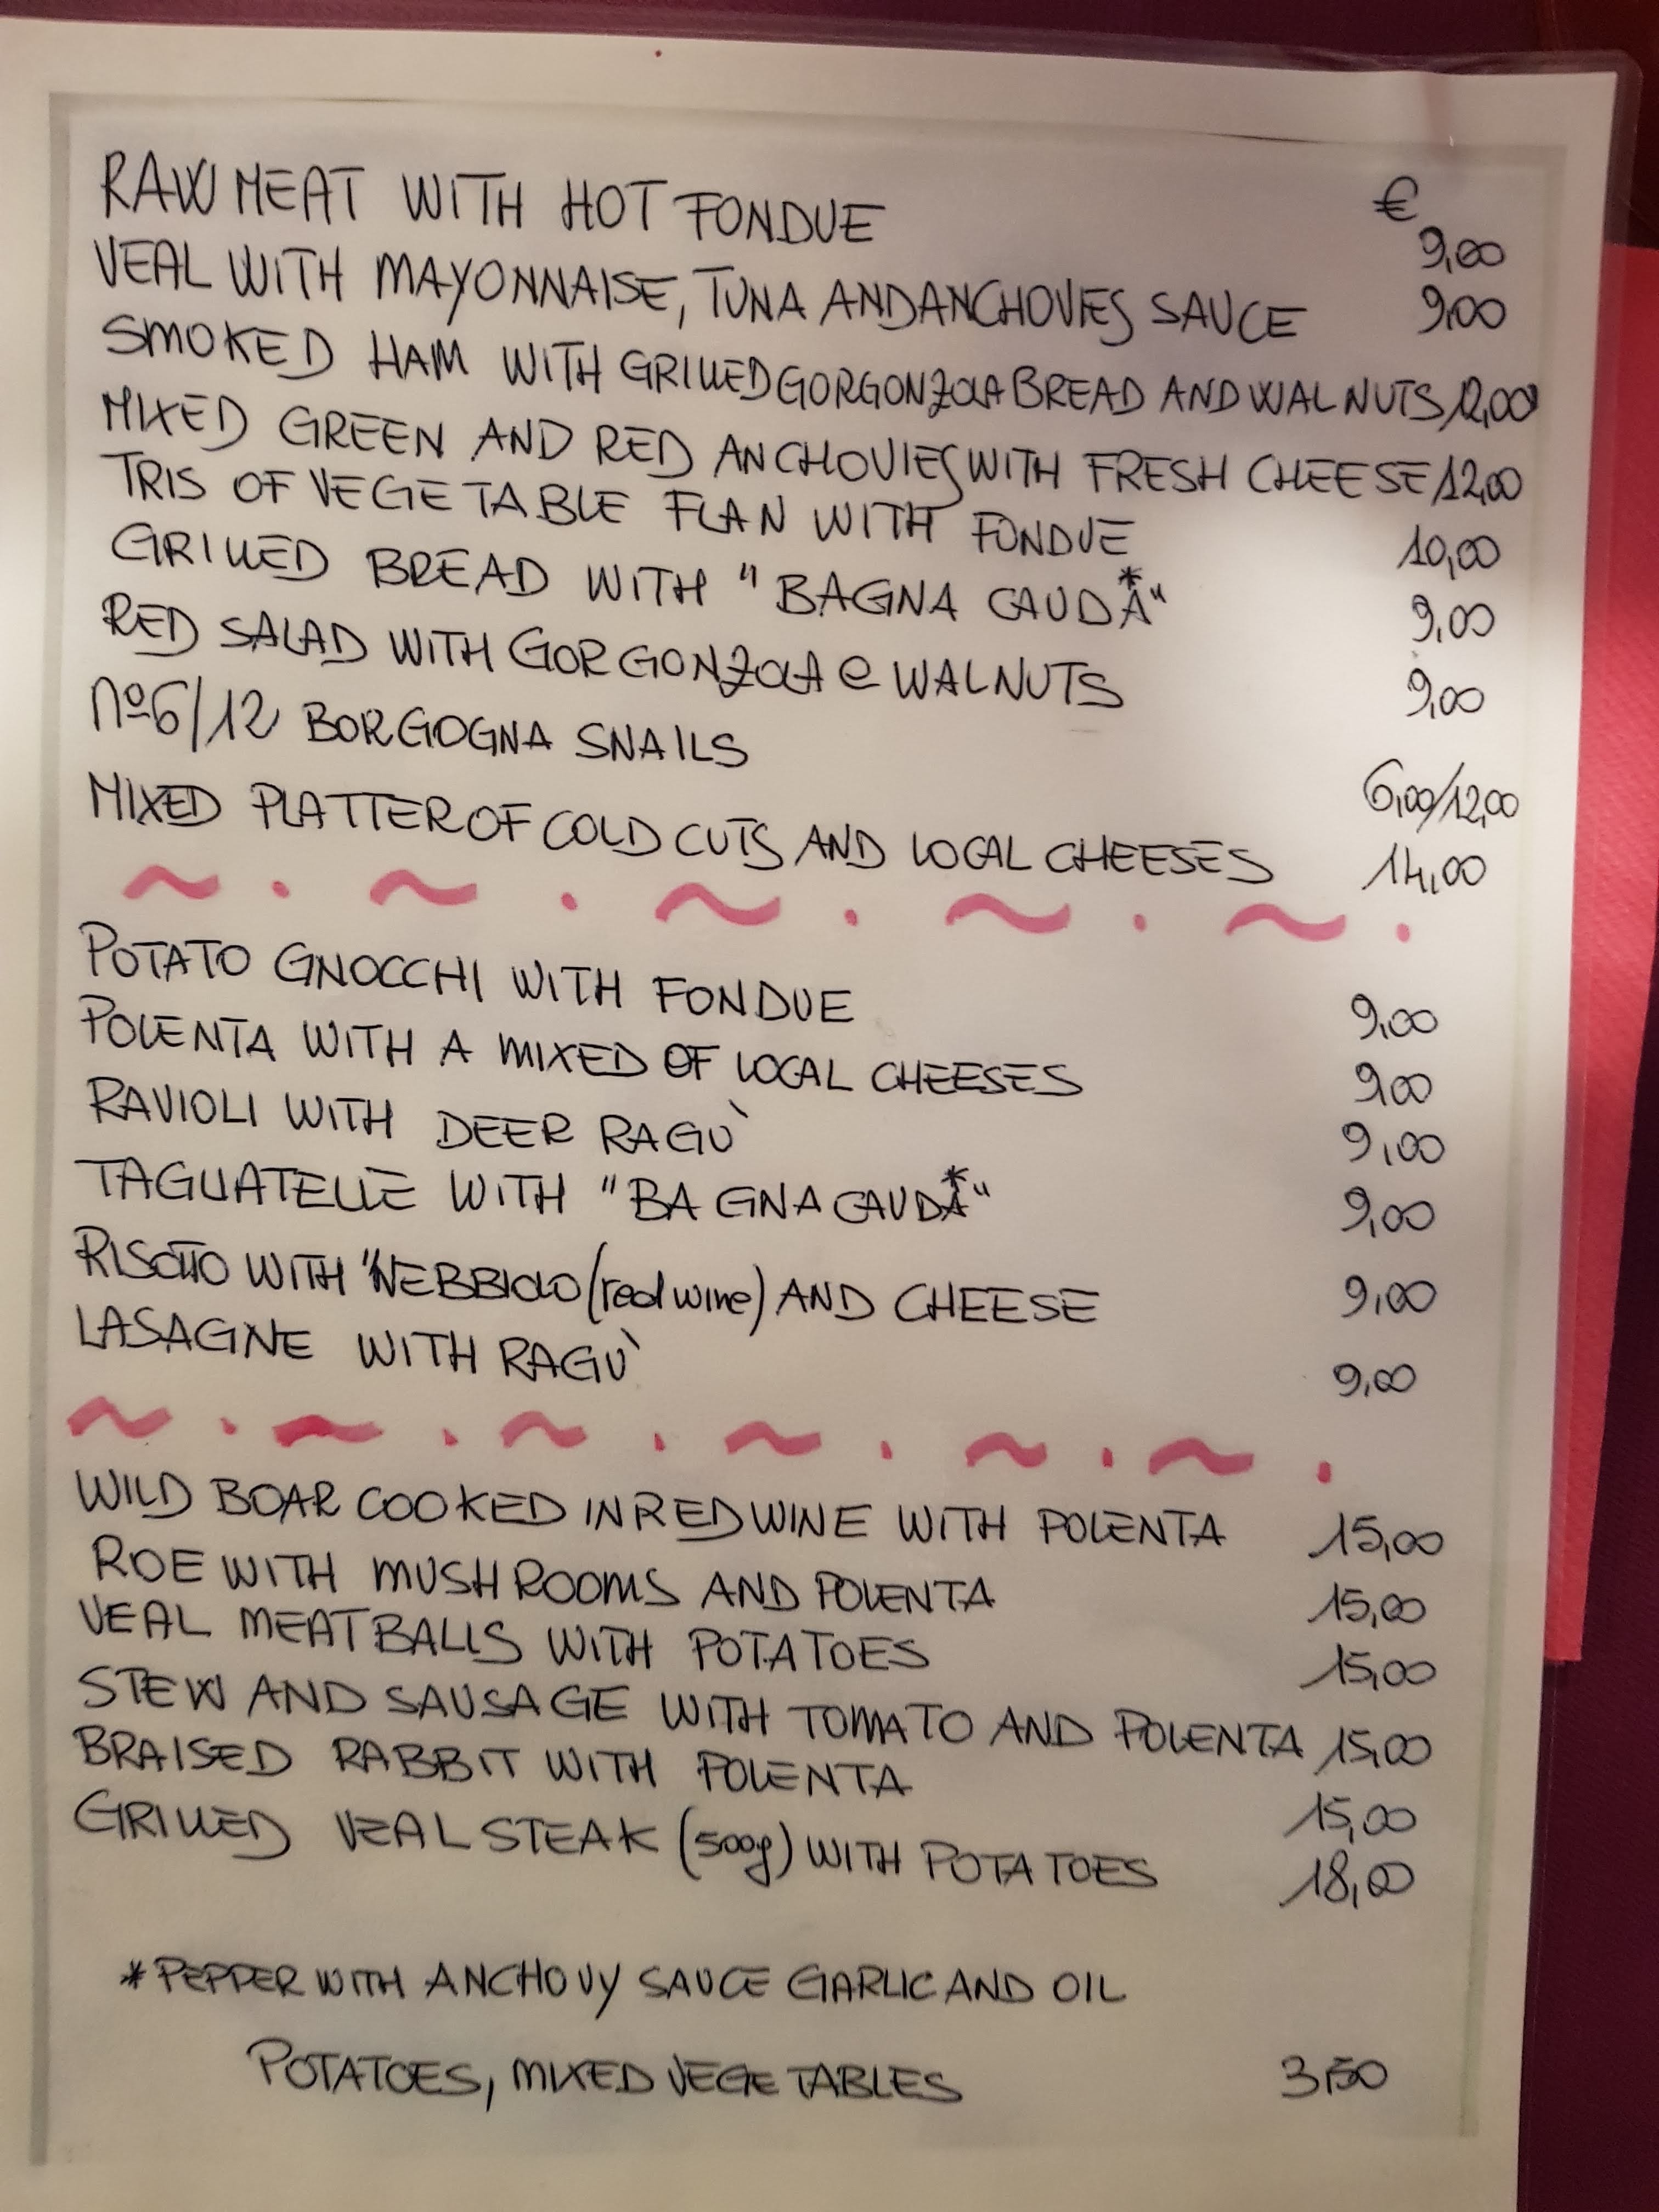 RAW MEAT WITH HOT FONDUE € 9,00
VEAL WITH MAYONNAISE, TUNA AND ANCHOVIES SAUCE 9,00
SMOKED HAM WITH GRILLED GORGONZOLA BREAD AND WALNUTS 12,00
MIXED GREEN AND RED ANCHOVIES WITH FRESH CHEESE 12,00
TRIS OF VEGETABLE FLAN WITH FONDUE 10,00
GRILLED BREAD WITH "BAGNA CAUDA*" 9,00
RED SALAD WITH GORGONZOLA e WALNUTS 9,00
Nº 6/12 BORGOGNA SNAILS 6,00/12,00
MIXED PLATTER OF COLD CUTS AND LOCAL CHEESES 14,00
POTATO GNOCCHI WITH FONDUE 9,00
POLENTA WITH A MIXED OF LOCAL CHEESES 9,00
RAVIOLI WITH DEER RAGÙ 9,00
TAGLIATELLE WITH "BAGNA CAUDA*" 9,00
RISOTTO WITH "NEBBIOLO (red wine) AND CHEESE 9,00
LASAGNE WITH RAGÙ 9,00
WILD BOAR COOKED IN RED WINE WITH POLENTA 15,00
ROE WITH MUSHROOMS AND POLENTA 15,00
VEAL MEATBALLS WITH POTATOES 15,00
STEW AND SAUSAGE WITH TOMATO AND POLENTA 15,00
BRAISED RABBIT WITH POLENTA 15,00
GRILLED VEAL STEAK (500g) WITH POTATOES 18,00
*PEPPER WITH ANCHOVY SAUCE GARLIC AND OIL
POTATOES, MIXED VEGETABLES 3,50